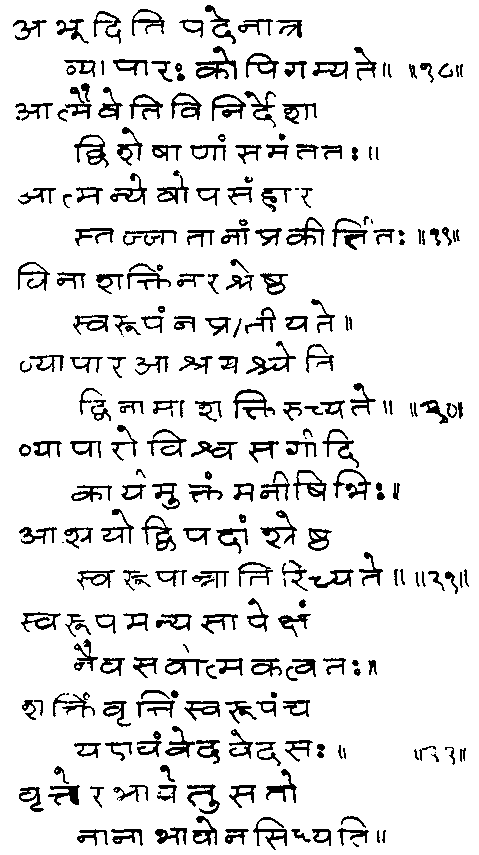 अभूदिति पदेनात्र
व्यापारः कोपिगम्यते॥ ॥१८॥
आत्मैवेतिविनिर्देशा
द्विशेषाणांसमंततः॥
आत्मन्येवोपसंहार
स्तज्जातानांप्रकीर्त्तितः॥१९॥
विनाशक्तिंनरश्रेष्ठ
स्वरूपंनप्रतीयते॥
व्यापारआश्रयश्चेति
द्विनामाशक्तिरुच्यते॥ ॥२०॥
व्यापारोविश्वसर्गादि
कार्यमुक्तंमनीषिभिः॥
आश्रयोद्विपदांश्रेष्ठ
स्वरूपान्नातिरिच्यते॥॥२१॥
स्वरूपमन्यसापेक्षं
नैवसर्वात्मकत्वतः॥
शक्तिंवृत्तिंस्वरूपंच
यएवंवेदवेदसः॥ ॥२२॥
वृत्तेरभावेतुसतो
नानाभावोनसिध्यति॥